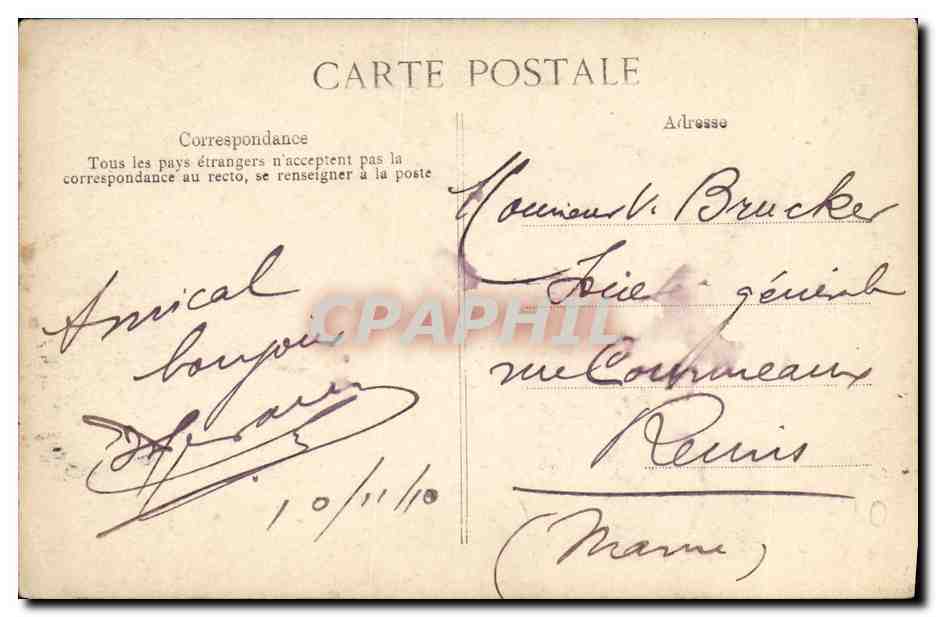 CARTE POSTALE
Correspondance
Tous les pays étrangers n'acceptent pas la
correspondance au recto, se renseigner à la poste
Amical
bonjour
10/11/10
Adresse
Monsieur V. Brucker
Société générale
rue Courmeaux
Reims
(Marne)
CPAPHIL